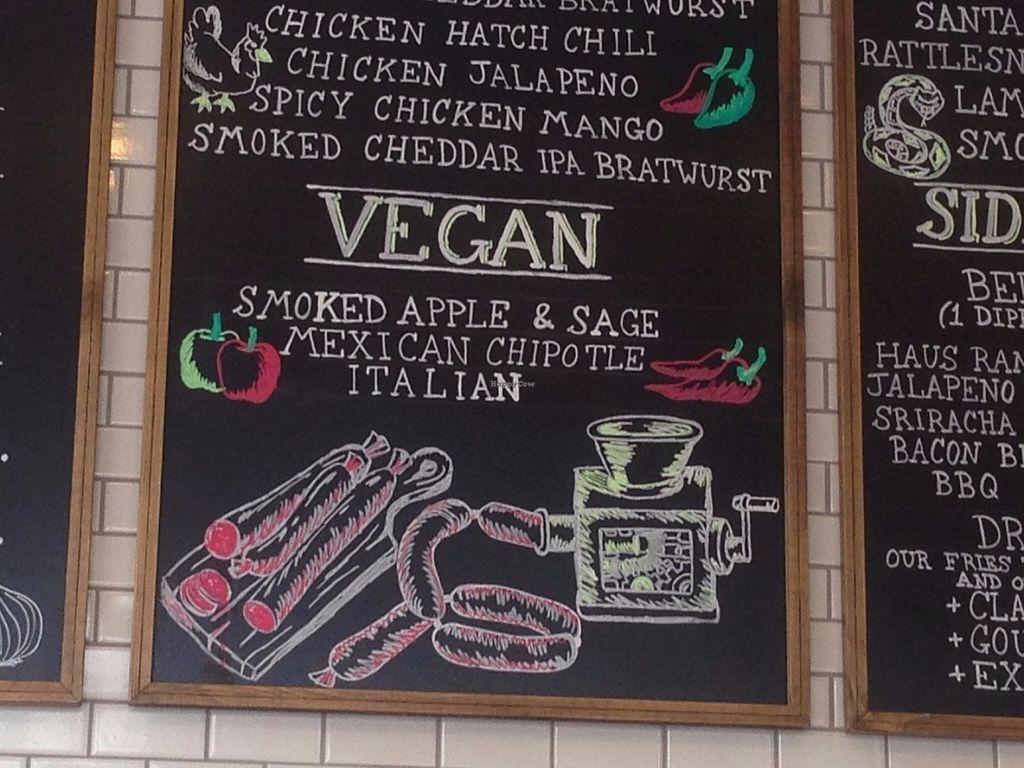 CHEDDAR BRATWURST
CHICKEN HATCH CHILI
CHICKEN JALAPENO
SPICY CHICKEN MANGO
SMOKED CHEDDAR IPA BRATWURST
VEGAN
SMOKED APPLE & SAGE
MEXICAN CHIPOTLE
ITALIAN
HappyCow
SANTA
LAM
SMO
SID
BE
(1 DIP
HAUS RAN
JALAPENO
SRIRACHA
BACON B
BBQ
DR
OUR FRIES
AND O
+ CLA
+ GOU
+ EX